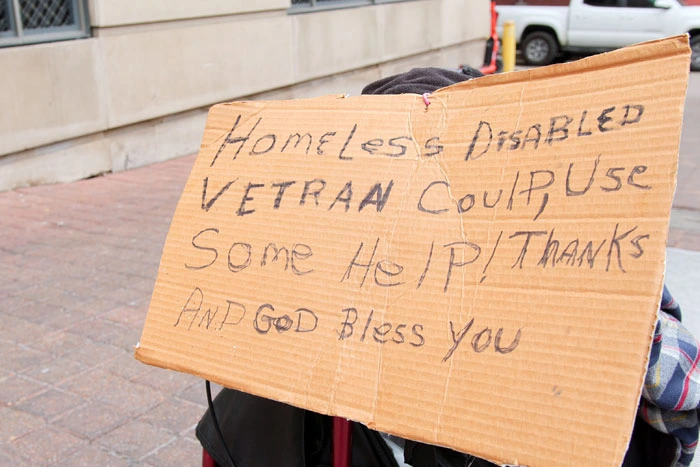 HOMELess DISABLED
VETRAN CoulD, Use
Some HelP! THANKS
AND GOD Bless You